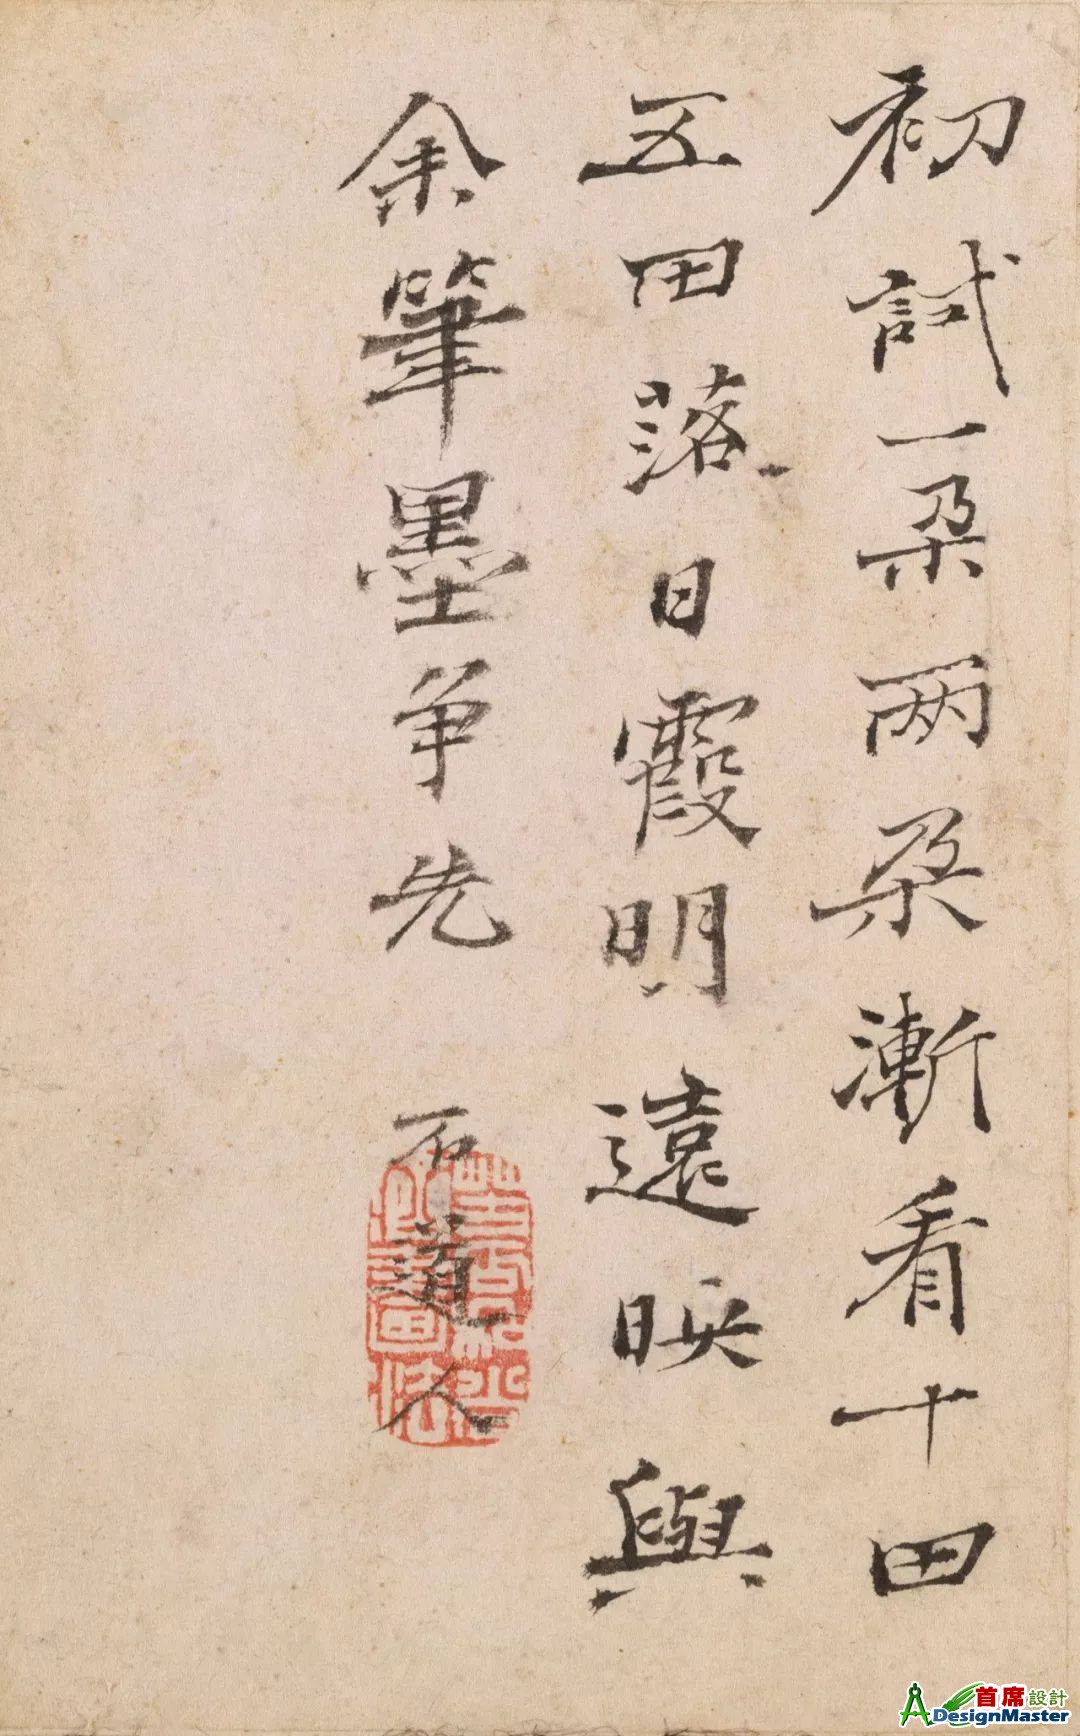 初試一朶兩朶漸看十田
五田落日霞明遠映與
余筆墨爭先
石道人
首席設計
ADesignMaster